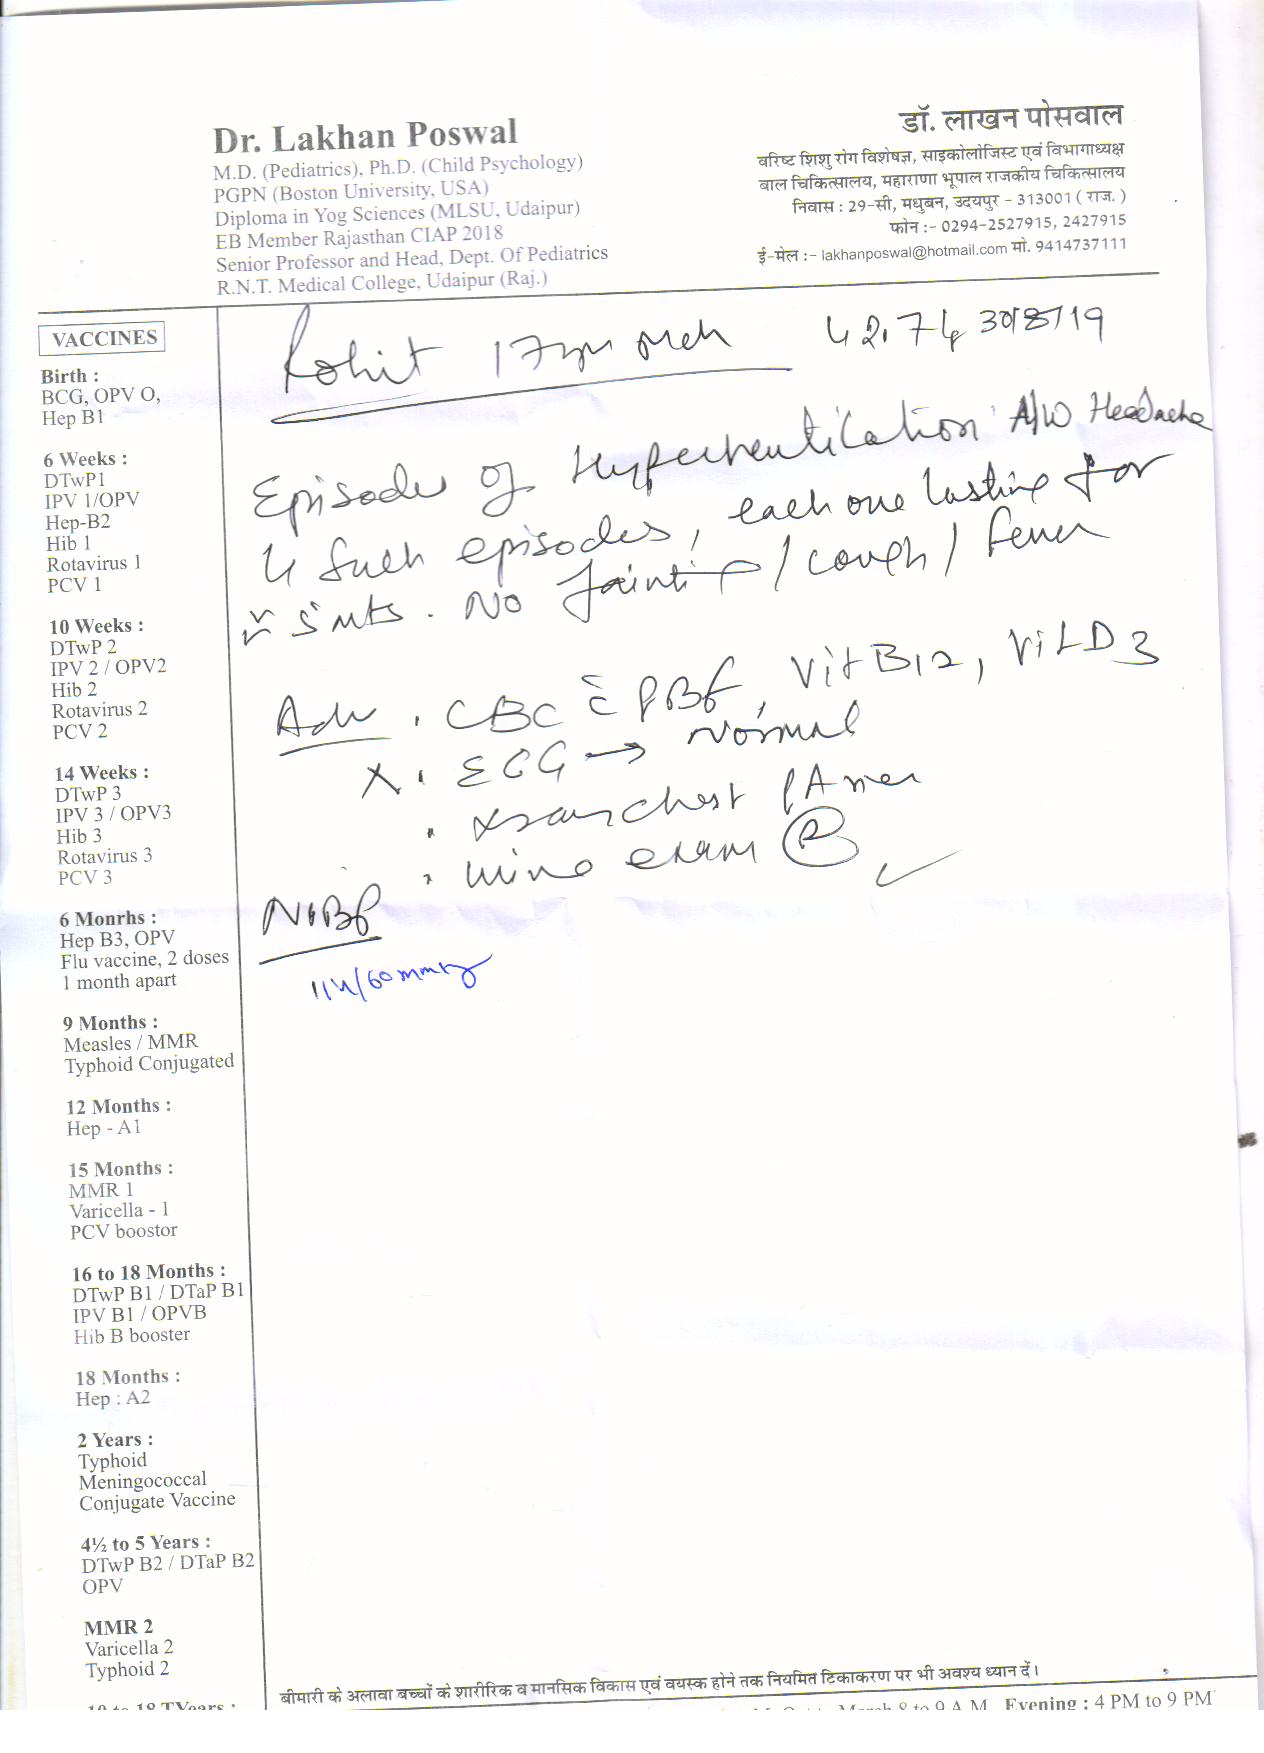 Dr. Lakhan Poswal
M.D. (Pediatrics), Ph.D. (Child Psychology)
PGPN (Boston University, USA)
Diploma in Yog Sciences (MLSU, Udaipur)
EB Member Rajasthan CIAP 2018
Senior Professor and Head, Dept. Of Pediatrics
R.N.T. Medical College, Udaipur (Raj.)
डॉ. लाखन पोसवाल
वरिष्ट शिशु रोग विशेषज्ञ, साइकोलोजिस्ट एवं विभागाध्यक्ष
बाल चिकित्सालय, महाराणा भूपाल राजकीय चिकित्सालय
निवास : 29-सी, मधुबन, उदयपुर - 313001 ( राज. )
फोन :- 0294-2527915, 2427915
ई-मेल :- lakhanposwal@hotmail.com मो. 9414737111
VACCINES
Birth :
BCG, OPV O,
Hep B1
6 Weeks :
DTwP1
IPV 1/OPV
Hep-B2
Hib 1
Rotavirus 1
PCV 1
10 Weeks :
DTwP 2
IPV 2 / OPV2
Hib 2
Rotavirus 2
PCV 2
14 Weeks :
DTwP 3
IPV 3 / OPV3
Hib 3
Rotavirus 3
PCV 3
6 Monrhs :
Hep B3, OPV
Flu vaccine, 2 doses
1 month apart
9 Months :
Measles / MMR
Typhoid Conjugated
12 Months :
Hep - A1
15 Months :
MMR 1
Varicella - 1
PCV boostor
16 to 18 Months :
DTwP B1 / DTaP B1
IPV B1 / OPVB
Hib B booster
18 Months :
Hep : A2
2 Years :
Typhoid
Meningococcal
Conjugate Vaccine
4½ to 5 Years :
DTwP B2 / DTaP B2
OPV
MMR 2
Varicella 2
Typhoid 2
Rohit 17yrs 42.7 30/8/19
Episodes of Hyperventilation A/W Headache
4 Such episodes, each one lasting for
5 mts. No fainting / cough / fever
Adv . CBC c̄ PBF, Vit B12, Vit D3
X . ECG → Normal
. Xray chest PA view
. Urine exam (R)
NIBP
114/60 mmHg
बीमारी के अलावा बच्चों के शारीरिक व मानसिक विकास एवं वयस्क होने तक नियमित टिकाकरण पर भी अवश्य ध्यान दें।
March 8 to 9 A.M. Evening : 4 PM to 9 PM